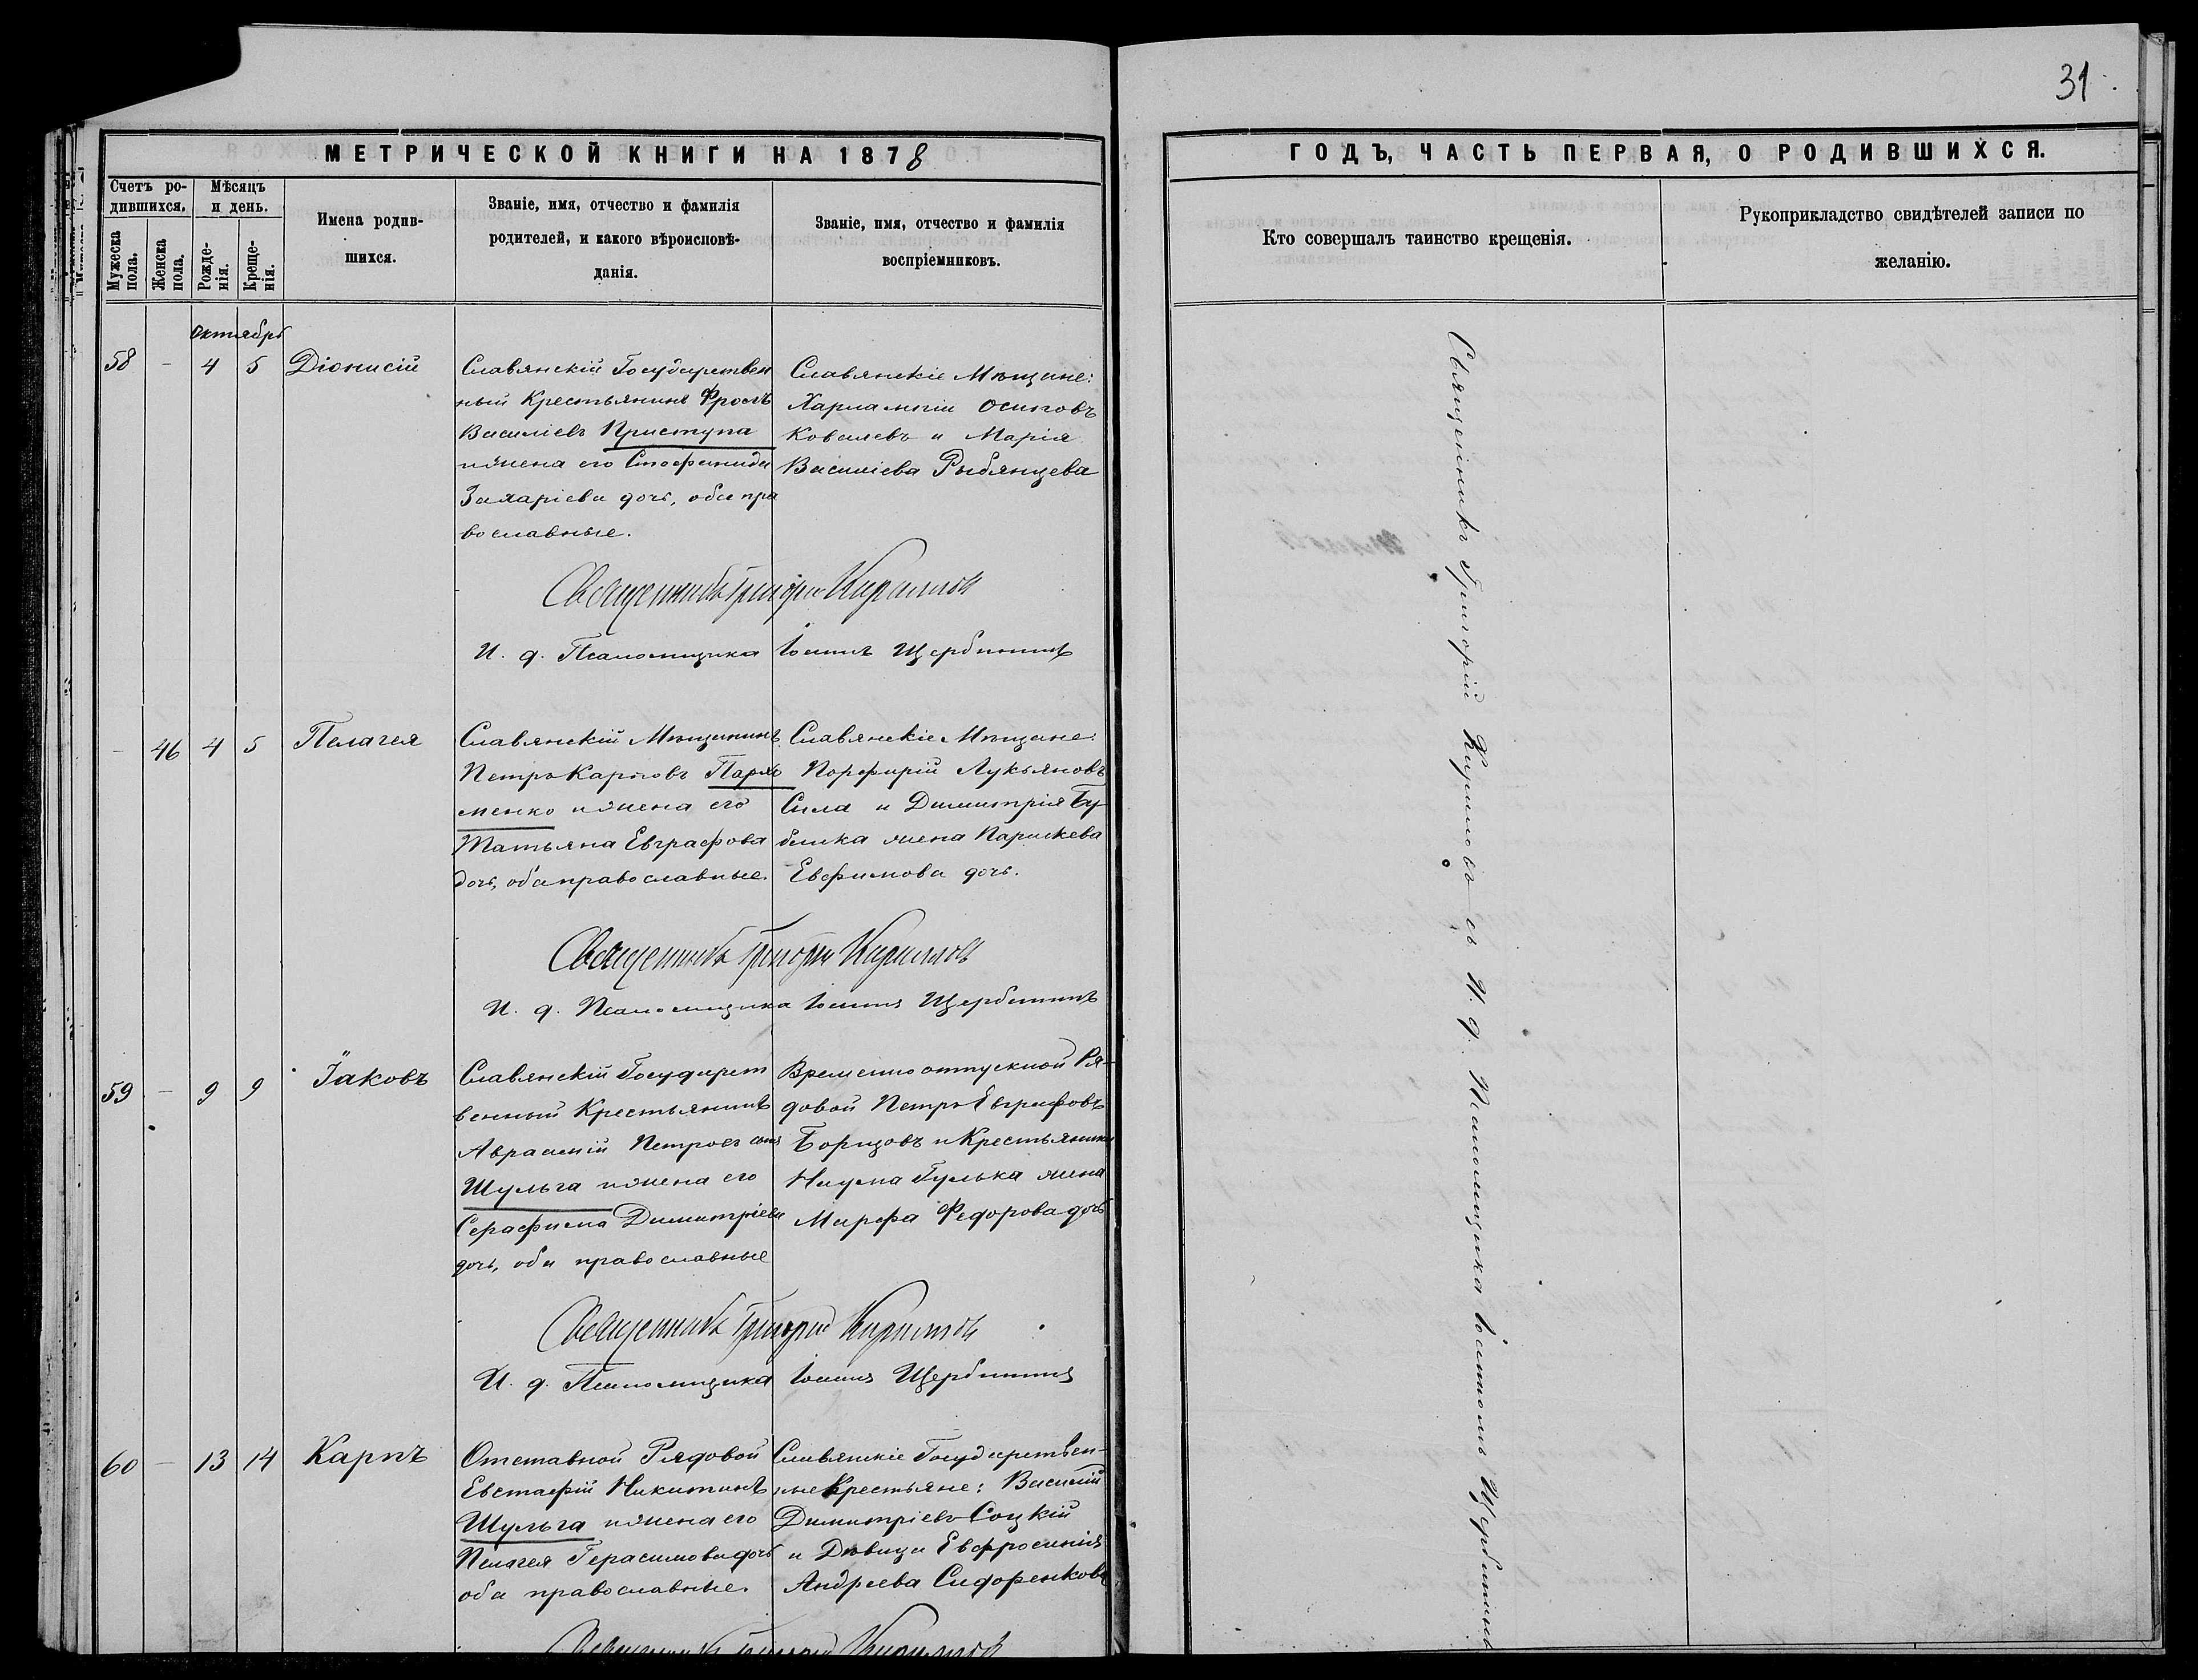 31.
МЕТРИЧЕСКОЙ КНИГИ НА 1878
Счетъ ро-
дившихся.
Мужеска
пола.
Женска
пола.
Мѣсяцъ
и день.
Рожде-
нія.
Креще-
нія.
Имена родив-
шихся.
Званіе, имя, отчество и фамилія
родителей, и какого вѣроисповѣ-
данія.
Званіе, имя, отчество и фамилія
воспріемниковъ.
октябрь
58 - 4 5 Діонисій
Славянскій Государствен
ный Крестьянинъ Фролъ
Василіевъ Приступа
и жена его Стефанида
Захаріева дочь, оба пра
вославные.
Славянскіе Мѣщане:
Харлампій Осиповъ
Ковалевъ и Марія
Василіева Рыбянцева
Священникъ Григорій Кириллов
И. д. Псаломщика Іоаннъ Щербининъ
- 46 4 5 Пелагея
Славянскій Мѣщанинъ
Петръ Карповъ Парха
менко и жена его
Татьяна Евграфова
дочь, оба православные.
Славянскіе Мѣщане:
Порфирій Лукьяновъ
Сила и Димитрія Бу-
блика жена Параскева
Евфимова дочь.
Священникъ Григорій Кириллов
И. д. Псаломщика Іоаннъ Щербининъ
59 - 9 9 Іаковъ
Славянскій Государст
венный Крестьянинъ
Аврамій Петровъ сынъ
Шульга и жена его
Серафима Димитріева
дочь, оба православные
Временно отпускной Ря-
довой Петръ Евграфовъ
Борцовъ и Крестьянина
Наума Гулька жена
Марфа Федорова дочь
Священникъ Григорій Кириллов
И. д. Псаломщика Іоаннъ Щербининъ
60 - 13 14 Карпъ
Отставной Рядовой
Евстафій Никитинъ
Шульга и жена его
Пелагея Герасимова дочь
оба православные.
Славянскіе Государствен-
ные Крестьяне: Василій
Димитріевъ Соцкій
и Дѣвица Евфросинія
Андреева Сидоренкова
Священникъ Григорій Кириллов
ГОДЪ, ЧАСТЬ ПЕРВАЯ, О РОДИВШИХСЯ.
Кто совершалъ таинство крещенія.
Рукоприкладство свидѣтелей записи по
желанію.
Священникъ Григорій Кириловъ съ И. д. Псаломщика Іоанномъ Щербининымъ